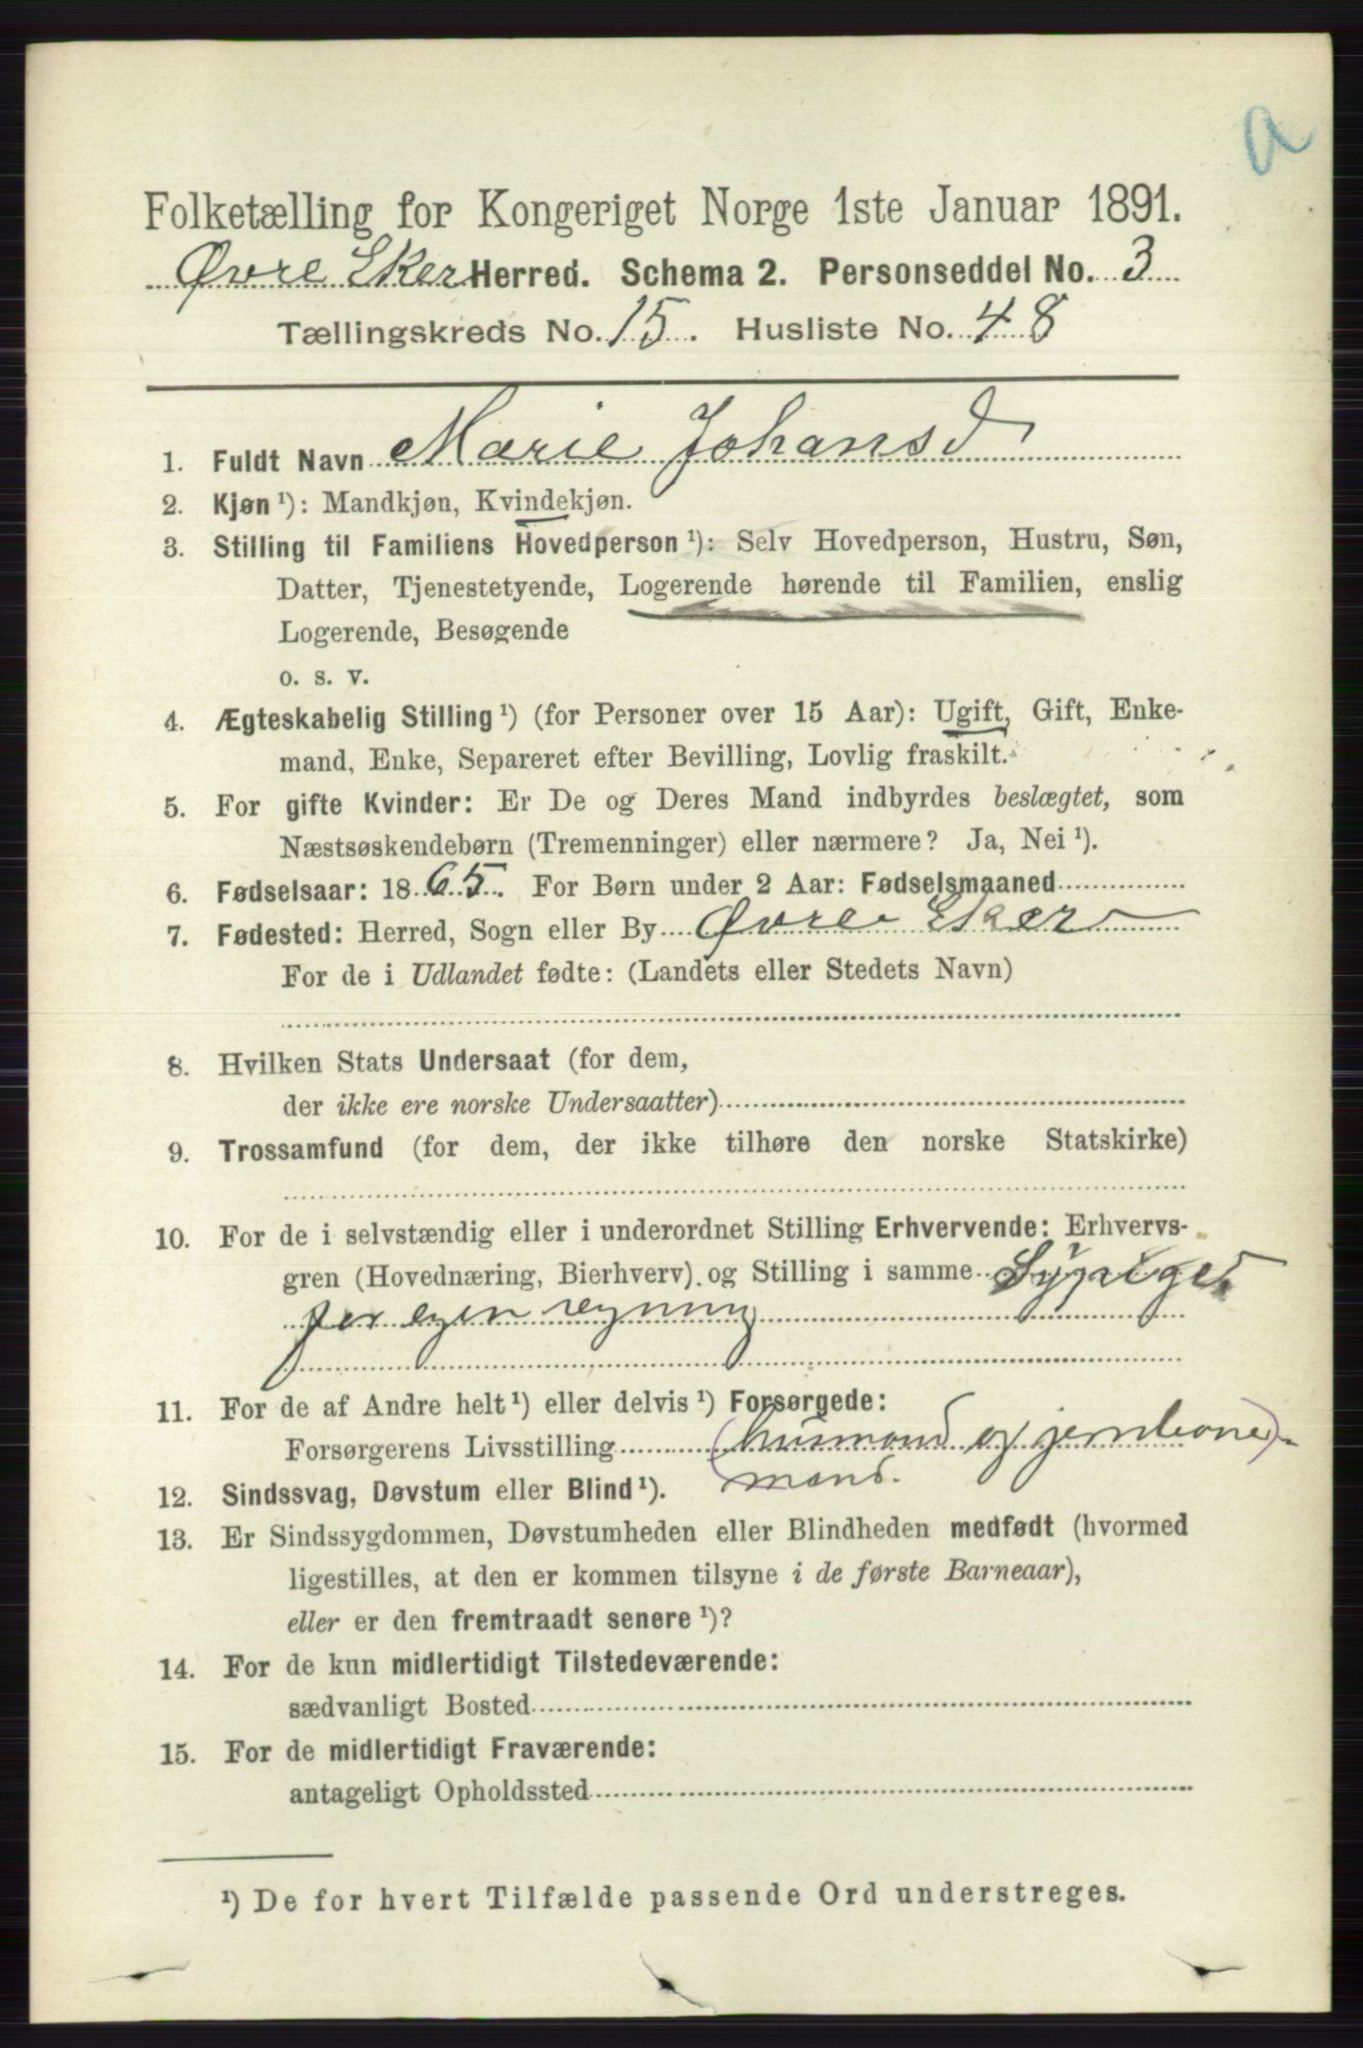 a
Folketælling for Kongeriget Norge 1ste Januar 1891.
Øvre Eker Herred. Schema 2. Personseddel No. 3
Tællingskreds No. 15. Husliste No. 48
1. Fuldt Navn Marie Johansd
2. Kjøn ¹): Mandkjøn, Kvindekjøn.
3. Stilling til Familiens Hovedperson ¹): Selv Hovedperson, Hustru, Søn,
Datter, Tjenestetyende, Logerende hørende til Familien, enslig
Logerende, Besøgende
o. s. v.
4. Ægteskabelig Stilling ¹) (for Personer over 15 Aar): Ugift, Gift, Enke-
mand, Enke, Separeret efter Bevilling, Lovlig fraskilt.
5. For gifte Kvinder: Er De og Deres Mand indbyrdes beslægtet, som
Næstsøskendebørn (Tremenninger) eller nærmere? Ja, Nei ¹).
6. Fødselsaar: 1865. For Børn under 2 Aar: Fødselsmaaned
7. Fødested: Herred, Sogn eller By Øvre Eker
For de i Udlandet fødte: (Landets eller Stedets Navn)
8. Hvilken Stats Undersaat (for dem,
der ikke ere norske Undersaatter)
9. Trossamfund (for dem, der ikke tilhøre den norske Statskirke)
10. For de i selvstændig eller i underordnet Stilling Erhvervende: Erhvervs-
gren (Hovednæring, Bierhverv) og Stilling i samme Sypige
for egen regning
11. For de af Andre helt ¹) eller delvis ¹) Forsørgede:
Forsørgerens Livsstilling (husmand og jernbane)-
mand.
12. Sindssvag, Døvstum eller Blind ¹).
13. Er Sindssygdommen, Døvstumheden eller Blindheden medfødt (hvormed
ligestilles, at den er kommen tilsyne i de første Barneaar),
eller er den fremtraadt senere ¹)?
14. For de kun midlertidigt Tilstedeværende:
sædvanligt Bosted
15. For de midlertidigt Fraværende:
antageligt Opholdssted
¹) De for hvert Tilfælde passende Ord understreges.